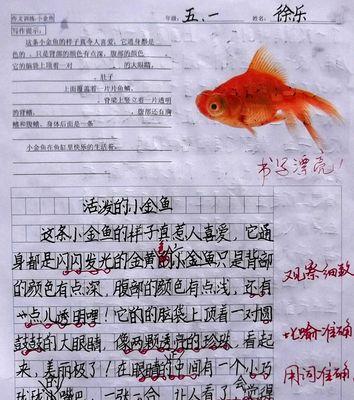 作文训练 小金鱼 年级：五.一 姓名：徐乐
写作提示：
这条小金鱼的样子真令人喜爱，它通身都是
色的，只是背部的颜色有点深，腹部的颜色
它的脑袋上顶着一对 的大眼睛，
，肚子
上面覆盖着一片片鱼鳞，
，背梁上竖立着一片透明
的背鳍， ，腹部还有胸
鳍和腹鳍，身体后面是一条
小金鱼在鱼缸里快乐的生活着。
书写漂亮！
活泼的小金鱼
这条小金鱼的样子真惹人喜爱，它通
身都是闪闪发光的金黄的，只是背部
的颜色有点深，腹部的颜色有点浅，还有
一点儿透明哩！它的脑袋上顶着一对圆
鼓鼓的大眼睛，像两颗透亮的珍珠，看起
来，美丽极了！在眼睛的中间有一个小巧
观察细致
比喻准确
用词准确